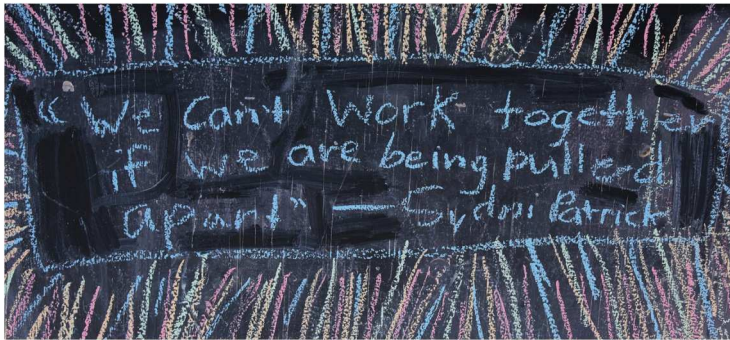 "We can't work together
if we are being pulled
apart" — Sydni Patrick